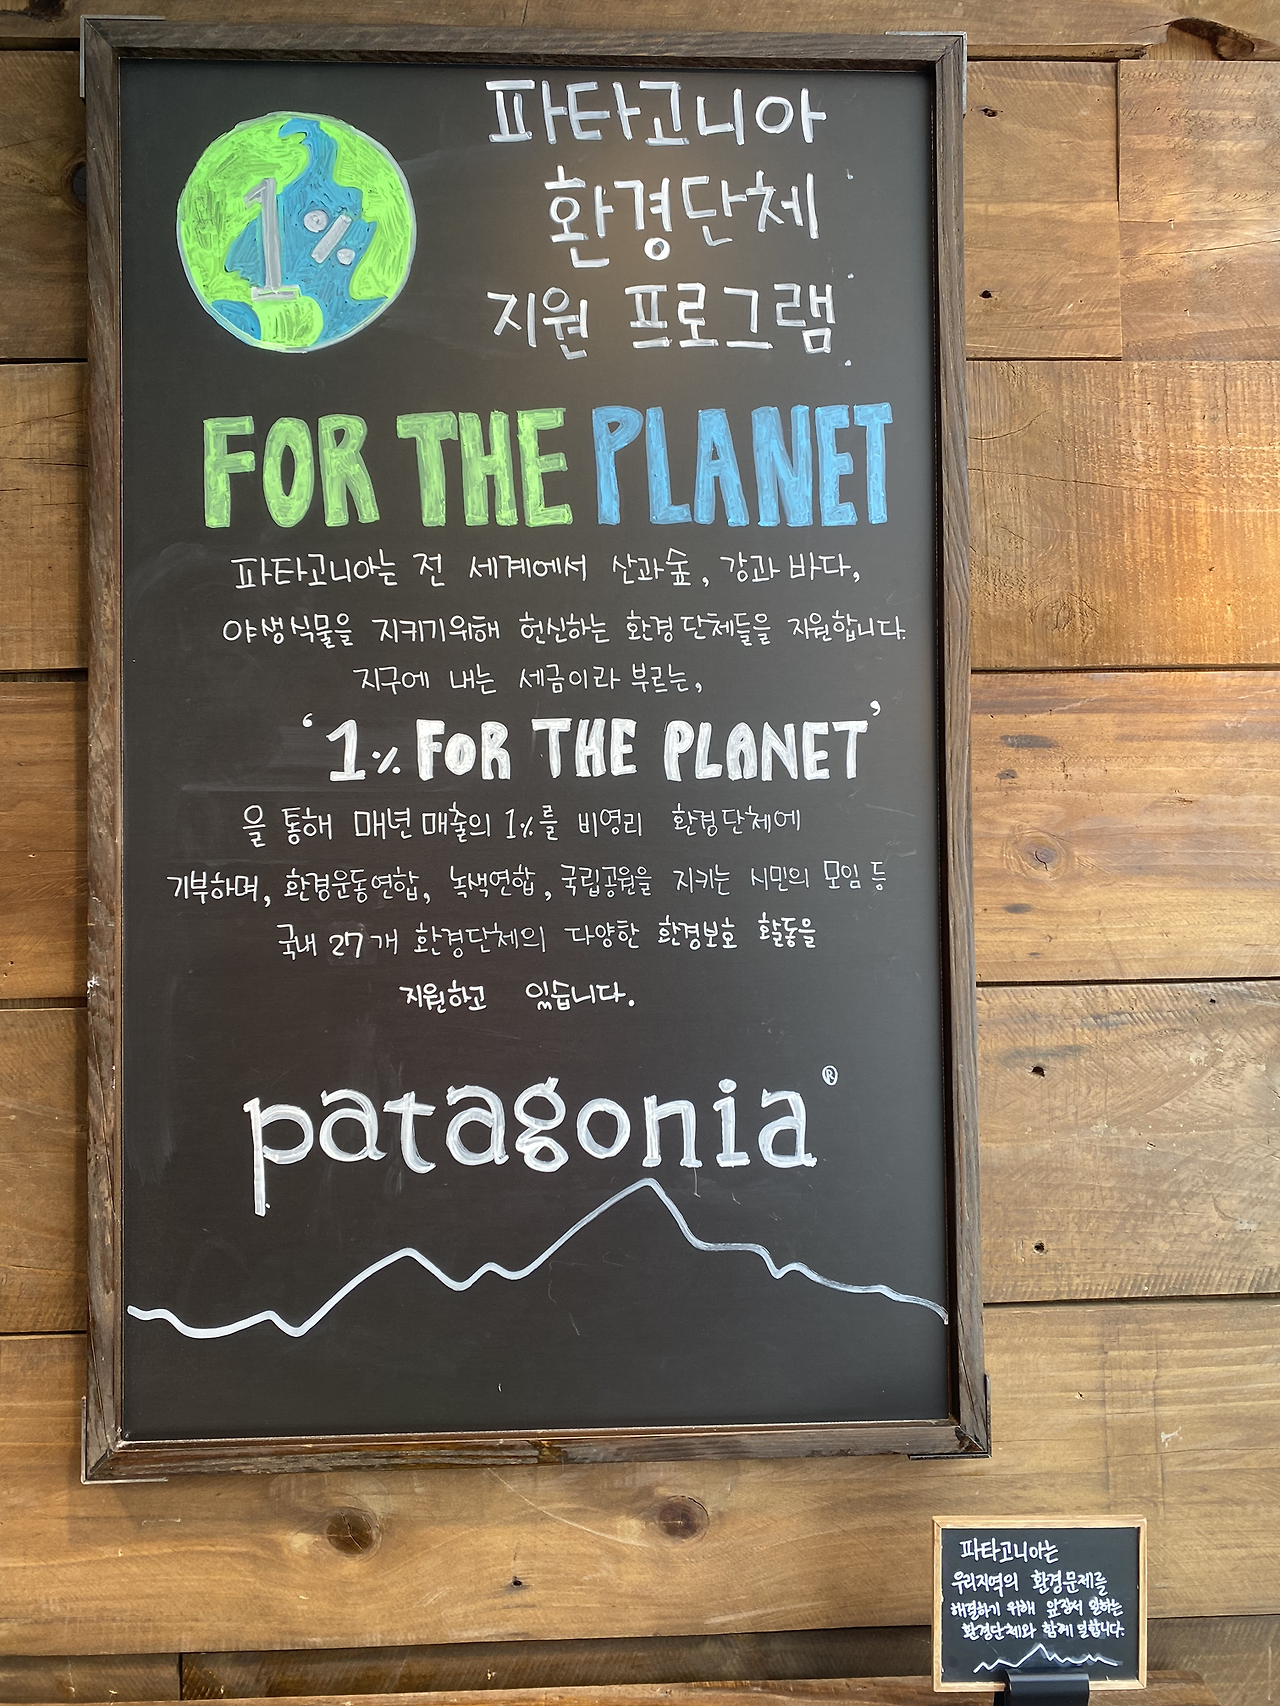 1%
파타고니아
환경단체
지원 프로그램
FOR THE PLANET
파타고니아는 전 세계에서 산과숲, 강과 바다,
야생식물을 지키기위해 헌신하는 환경단체들을 지원합니다.
지구에 내는 세금이라 부르는,
'1% FOR THE PLANET'
을 통해 매년 매출의 1%를 비영리 환경단체에
기부하며, 환경운동연합, 녹색연합, 국립공원을 지키는 시민의 모임 등
국내 27개 환경단체의 다양한 환경보호 활동을
지원하고 있습니다.
patagonia®
파타고니아는
우리지역의 환경문제를
해결하기 위해 앞장서 일하는
환경단체와 함께 일합니다.